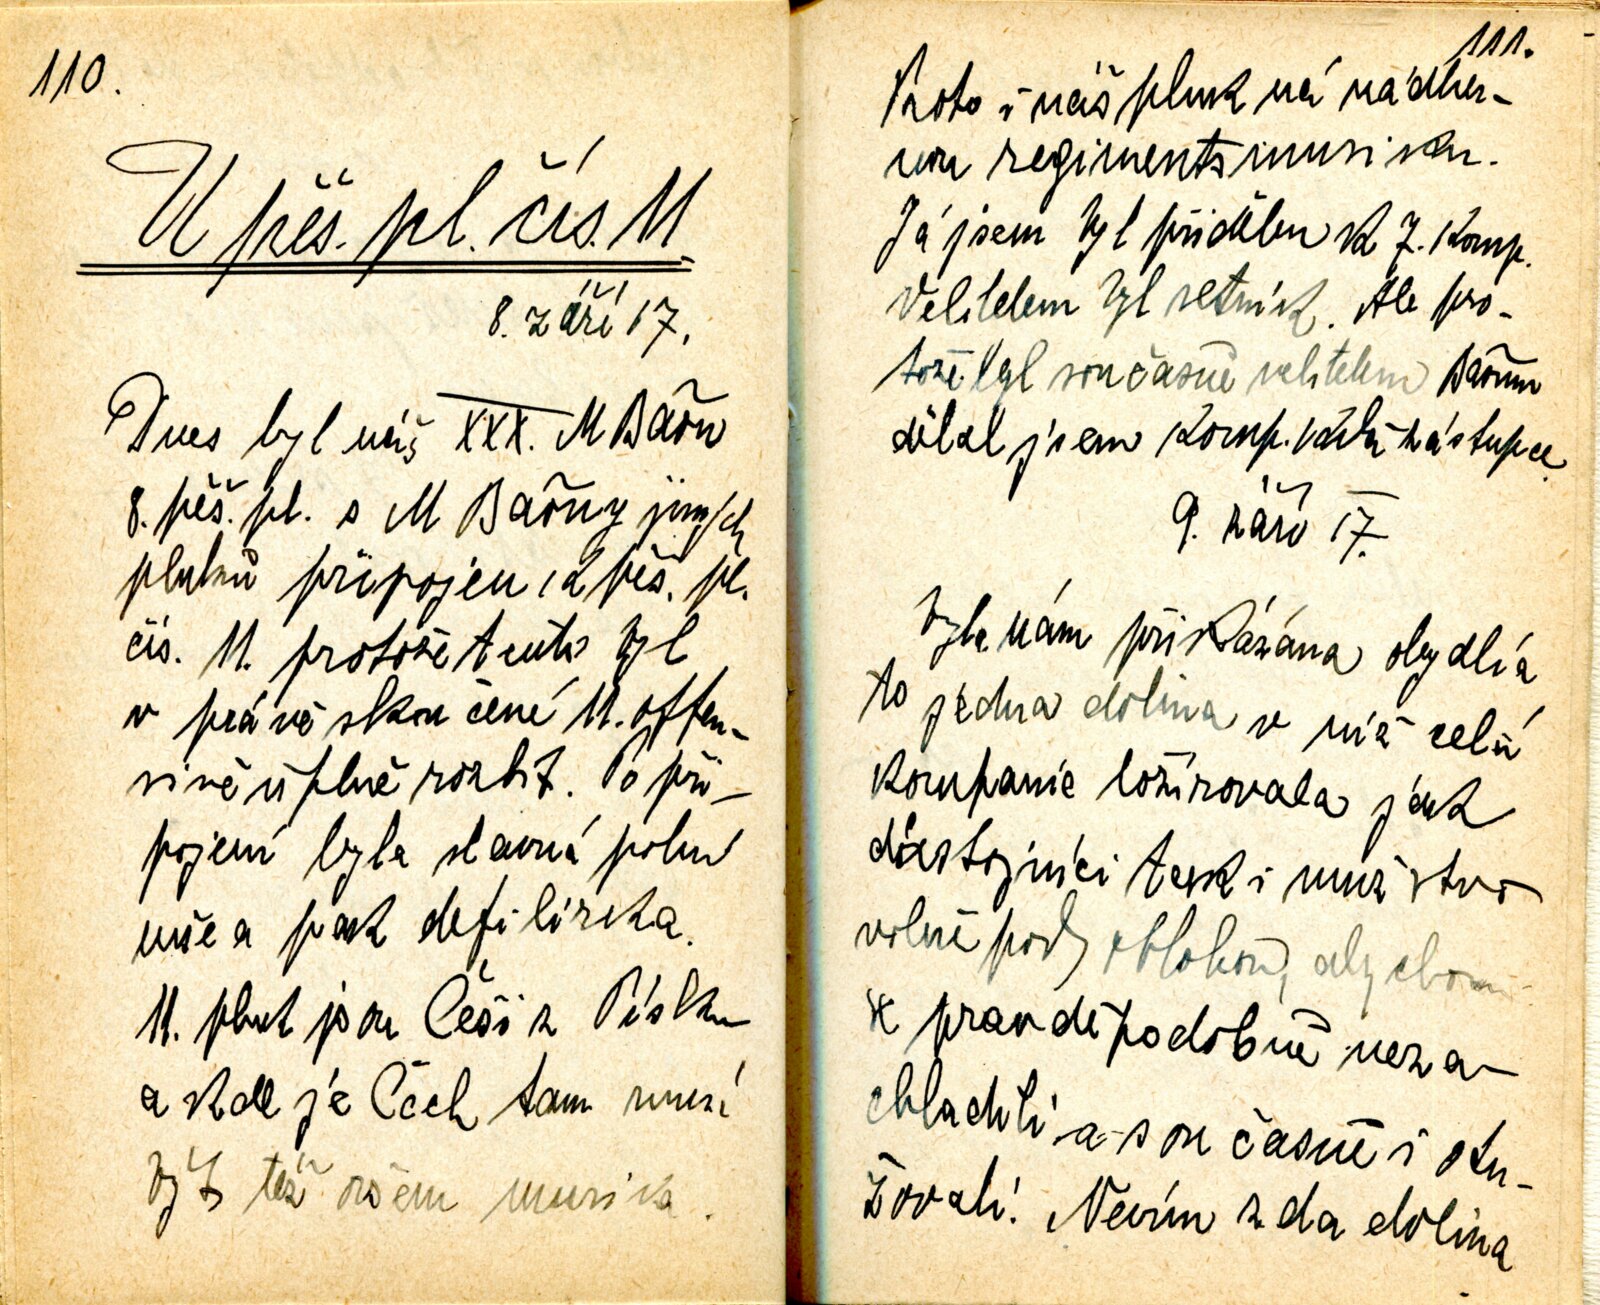 110.
U pěš. pl. čís. 11.
8. září 17.
Dnes byl náš XXX. M Baōn
8. pěš. pl. s M Baōny jiných
pluků připojen k pěš. pl.
čís. 11. protože tento byl
v právě skončené 11. offen-
sivě úplně rozbit. Po při-
pojení byla slavná polní
mše a pak defilírka.
11. pluk jsou Češi z Písku
a kde je Čech tam musí
býti též ovšem musika.
111.
Proto i náš pluk má nádher-
nou regimentsmusiku.
Já jsem byl přidělen k 7. komp.
Velitelem byl setník. Ale pro-
tože byl současně velitelem Baōnu
dělal jsem komp. zástupce.
9. září 17.
Byla nám přikázána obydlí a
to jedna dolina v níž celá
kompanie ložírovala jak
důstojníci tak i mužstvo
volně pod oblohou, abychom
se pravděpodobně neza-
chladili a současně i otu-
žovali. Nevím zda dolina